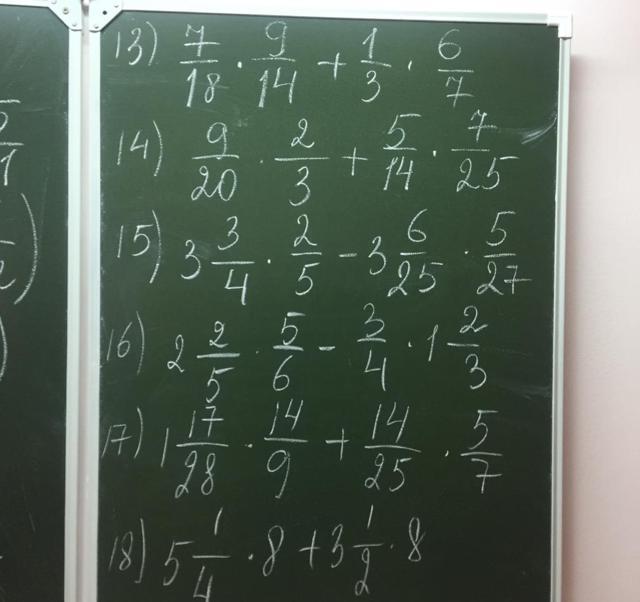 13) 7/18 · 9/14 + 1/3 · 6/7
14) 9/20 · 2/3 + 5/14 · 7/25
15) 3 3/4 · 2/5 - 3 6/25 · 5/27
16) 2 2/5 · 5/6 - 3/4 · 1 2/3
17) 1 17/28 · 14/9 + 14/25 · 5/7
18) 5 1/4 · 8 + 3 1/2 · 8